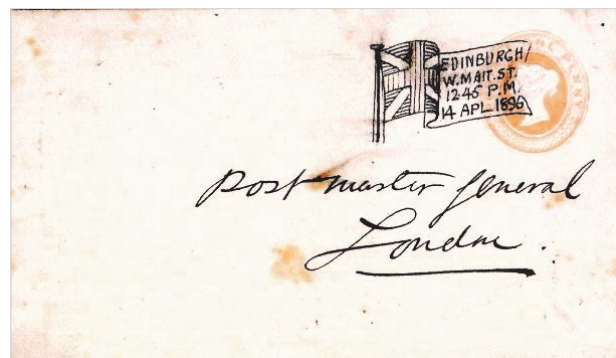 EDINBURGH/
W. MAIT. ST.
12 45 P.M.
14 APL. 1896
Postmaster General
London.